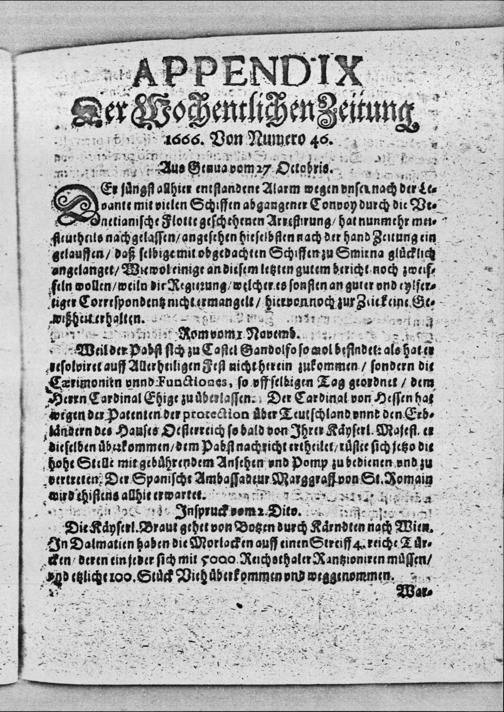 APPENDIX
Der Wochentlichen Zeitung
1666. Von Numero 46.
Aus Genua vom 27 Octobris.
DEr jüngst allhier entstandene Alarm wegen vnser nach der Le-
vante mit vielen Schiffen abgangener Convoy durch die Ve-
netianische Flotte geschehenen Arrestirung / hat nunmehr mei-
stentheils nachgelassen / angesehen hieselbsten nach der hand Zeitung ein
gelauffen / daß selbige mit obgedachten Schiffen zu Smirna glücklich
angelanget / Wiewol einige an diesem letzten gutem bericht noch zweif-
feln wollen / weiln dir Regierung / welcher es sonsten an guter vnd eylfer-
tiger Correspondentz nicht ermangelt / hiervon noch zur Zeit keine Ge-
wißheit erhalten.
Rom vom 1 Novemb.
Weil der Pabst sich zu Castel Gandolfo so wol befindet: als hat er
resolviret auff Allerheiligen Fest nicht herein zukommen / sondern die
Cærimonien vnnd Functiones, so vff selbigen Tag geordnet / dem
Herrn Cardinal Ehige zu überlassen. Der Cardinal von Hessen hat
wegen der Patenten der protection über Teutschland vnnd den Erb-
ländern des Hauses Oesterreich so bald von Ihrer Käyserl. Majest. er
dieselben überkommen / dem Pabst nachricht ertheilet / rüstet sich jetzo die
hohe Stelle mit gebührendem Ansehen vnd Pomp zu bedienen vnd zu
vertreten. Der Spanische Ambassadeur Marggraff von St. Romain
wird ehistens allhie erwartet.
Inspruck vom 2. Dito.
Die Käyserl. Braut gehet von Botzen durch Kärndten nach Wien.
In Dalmatien haben die Morlacken auff einen Streiff 4. reiche Tür-
cken / deren ein jeder sich mit 5000 Reichsthaler Rantzioniren müssen /
vnd etzliche 100. Stück Vieh überkommen vnd weggenommen.
War-